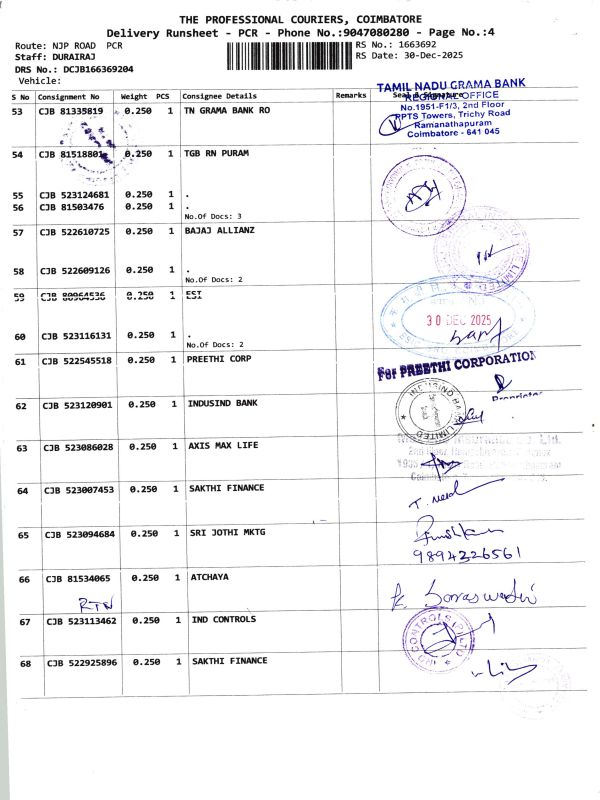 THE PROFESSIONAL COURIERS, COIMBATORE
Delivery Runsheet - PCR - Phone No.:9047080280 - Page No.:4
Route: NJP ROAD PCR
RS No.: 1663692
Staff: DURAIRAJ
RS Date: 30-Dec-2025
DRS No.: DCJB166369204
Vehicle:
S No Consignment No Weight PCS Consignee Details Remarks Seal & Signature
53 CJB 81335819 0.250 1 TN GRAMA BANK RO
TAMIL NADU GRAMA BANK
REGIONAL OFFICE
No.1951-F1/3, 2nd Floor
RPTS Towers, Trichy Road
Ramanathapuram
Coimbatore - 641 045
54 CJB 81518801 0.250 1 TGB RN PURAM
55 CJB 523124681 0.250 1 .
56 CJB 81503476 0.250 1 .
No.Of Docs: 3
57 CJB 522610725 0.250 1 BAJAJ ALLIANZ
58 CJB 522609126 0.250 1 .
No.Of Docs: 2
59 CJB 80964536 0.250 1 ESI
30 DEC 2025
60 CJB 523116131 0.250 1 .
No.Of Docs: 2
61 CJB 522545518 0.250 1 PREETHI CORP
For PREETHI CORPORATION
Proprietor
62 CJB 523120901 0.250 1 INDUSIND BANK
INDUSIND BANK LIMITED
63 CJB 523086028 0.250 1 AXIS MAX LIFE
64 CJB 523007453 0.250 1 SAKTHI FINANCE
65 CJB 523094684 0.250 1 SRI JOTHI MKTG
9894326561
66 CJB 81534065 0.250 1 ATCHAYA
RTN
67 CJB 523113462 0.250 1 IND CONTROLS
IND CONTROLS (P) LTD
68 CJB 522925896 0.250 1 SAKTHI FINANCE